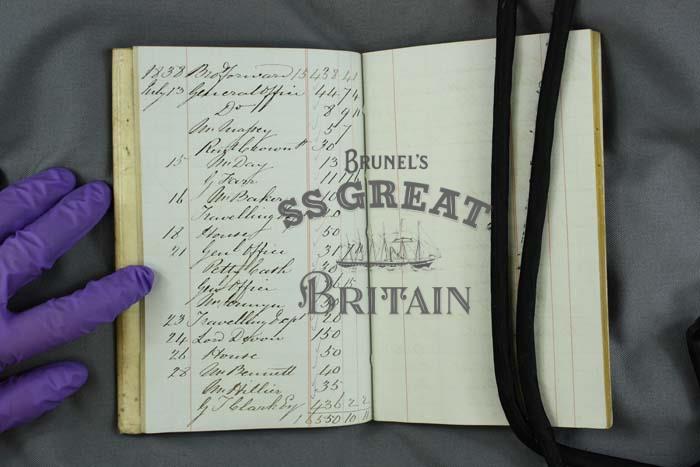 1838 Bro Forward 15438
July 13 General Office 44 7 4
Do 8 9 11
Mr Massey 57
30
15 Mr Day 13
G Farr 11
16 Mr Baker
Travelling
18 House 50
21 Genl Office 31
Petty Cash 30
Genl Office
Mr
23 Travelling Expt 20
24 Lord Devon 150
26 House 50
28 Mr Bennett 40
Mr Hillier 35
G T Clark Esq 436 2 2
16550 10 11
BRUNEL'S
SS GREAT
BRITAIN